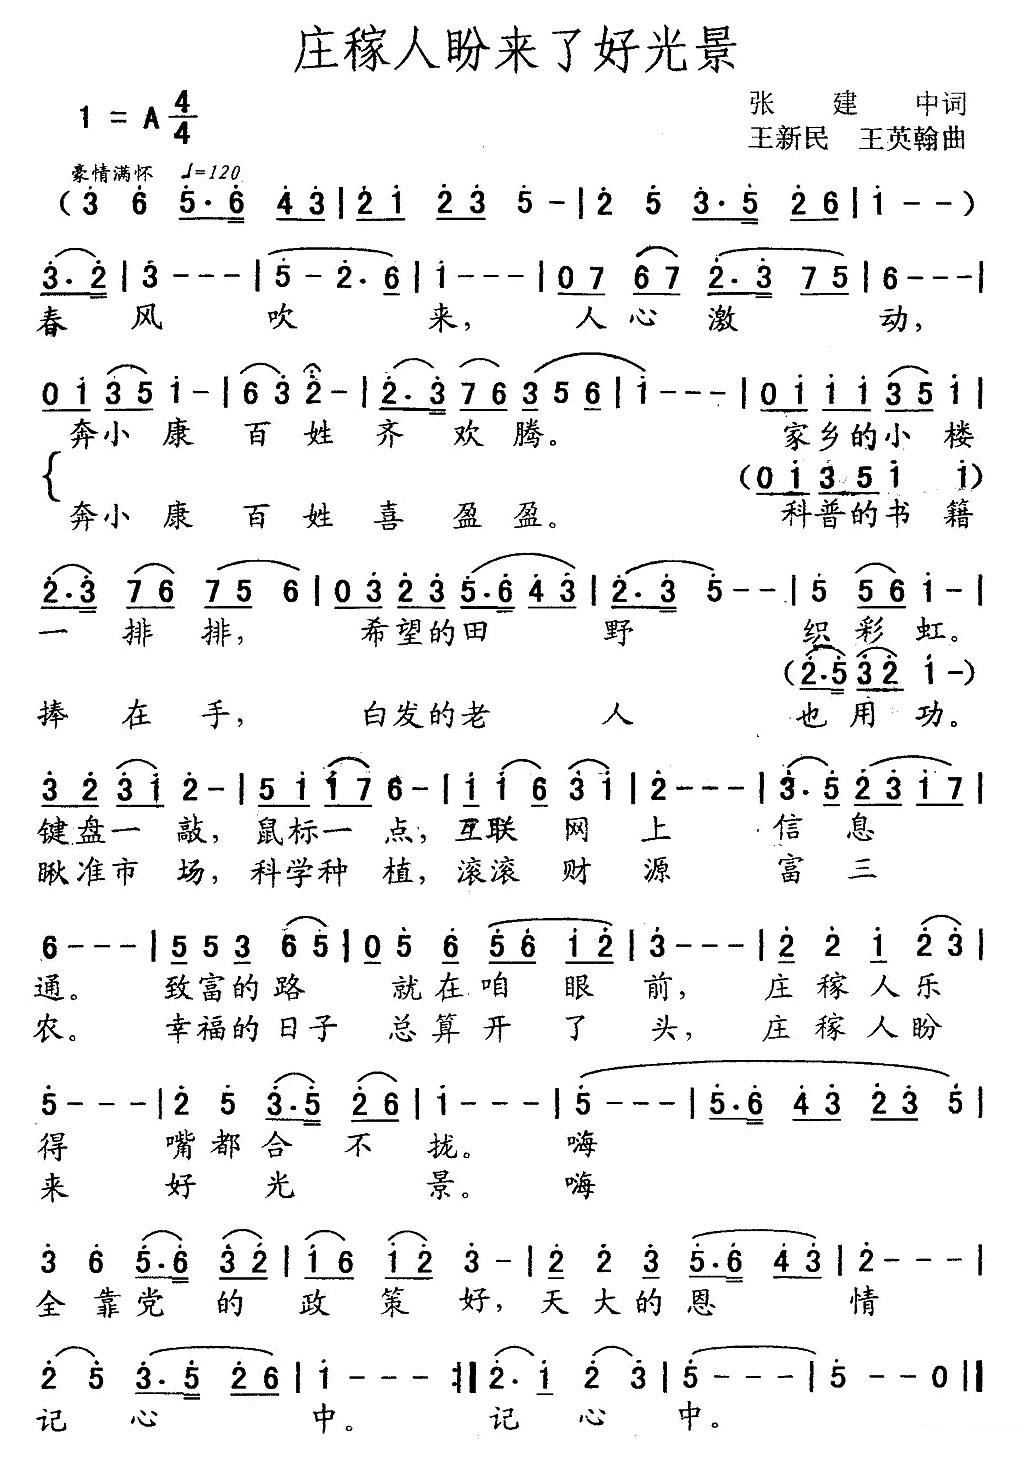 庄稼人盼来了好光景
1 = A 4/4
张建中词
王新民 王英翰曲
豪情满怀 ♩=120
(3 6 5·6 43|21 23 5-|2 5 3·5 26|1--)
3·2|3---|5-2·6|1---|07 67 2·3 75|6---|
春风吹来,人心激动,
01 35 1-|63 2-|2·3 76 5 5 6|1---|01 11 35 1|
奔小康百姓齐欢腾。家乡的小楼
(01 35 1 1)
奔小康百姓喜盈盈。科普的书籍
2·3 76 75 6|03 23 5·6 43|2·3 5--|5 56 1-|
一排排,希望的田野织彩虹。
(2·5 32 1-)
捧在手,白发的老人也用功。
32 31 2-|51 17 6-|11 6 31|2---|3·5 23 17|
键盘一敲,鼠标一点,互联网上信息
瞅准市场,科学种植,滚滚财源富三
6---|55 3 65|05 6 56 12|3---|2 2 1 23|
通。致富的路就在咱眼前,庄稼人乐
农。幸福的日子总算开了头,庄稼人盼
5---|2 5 3·5 26|1---|5---|5·6 43 23 5|
得嘴都合不拢。嗨
来好光景。嗨
3 6 5·6 32|16 12 3-|2 2 3 5·6 43|2---|
全靠党的政策好,天大的恩情
2 5 3·5 26|1---:||2·1 23|5---|5--0||
记心中。记心中。